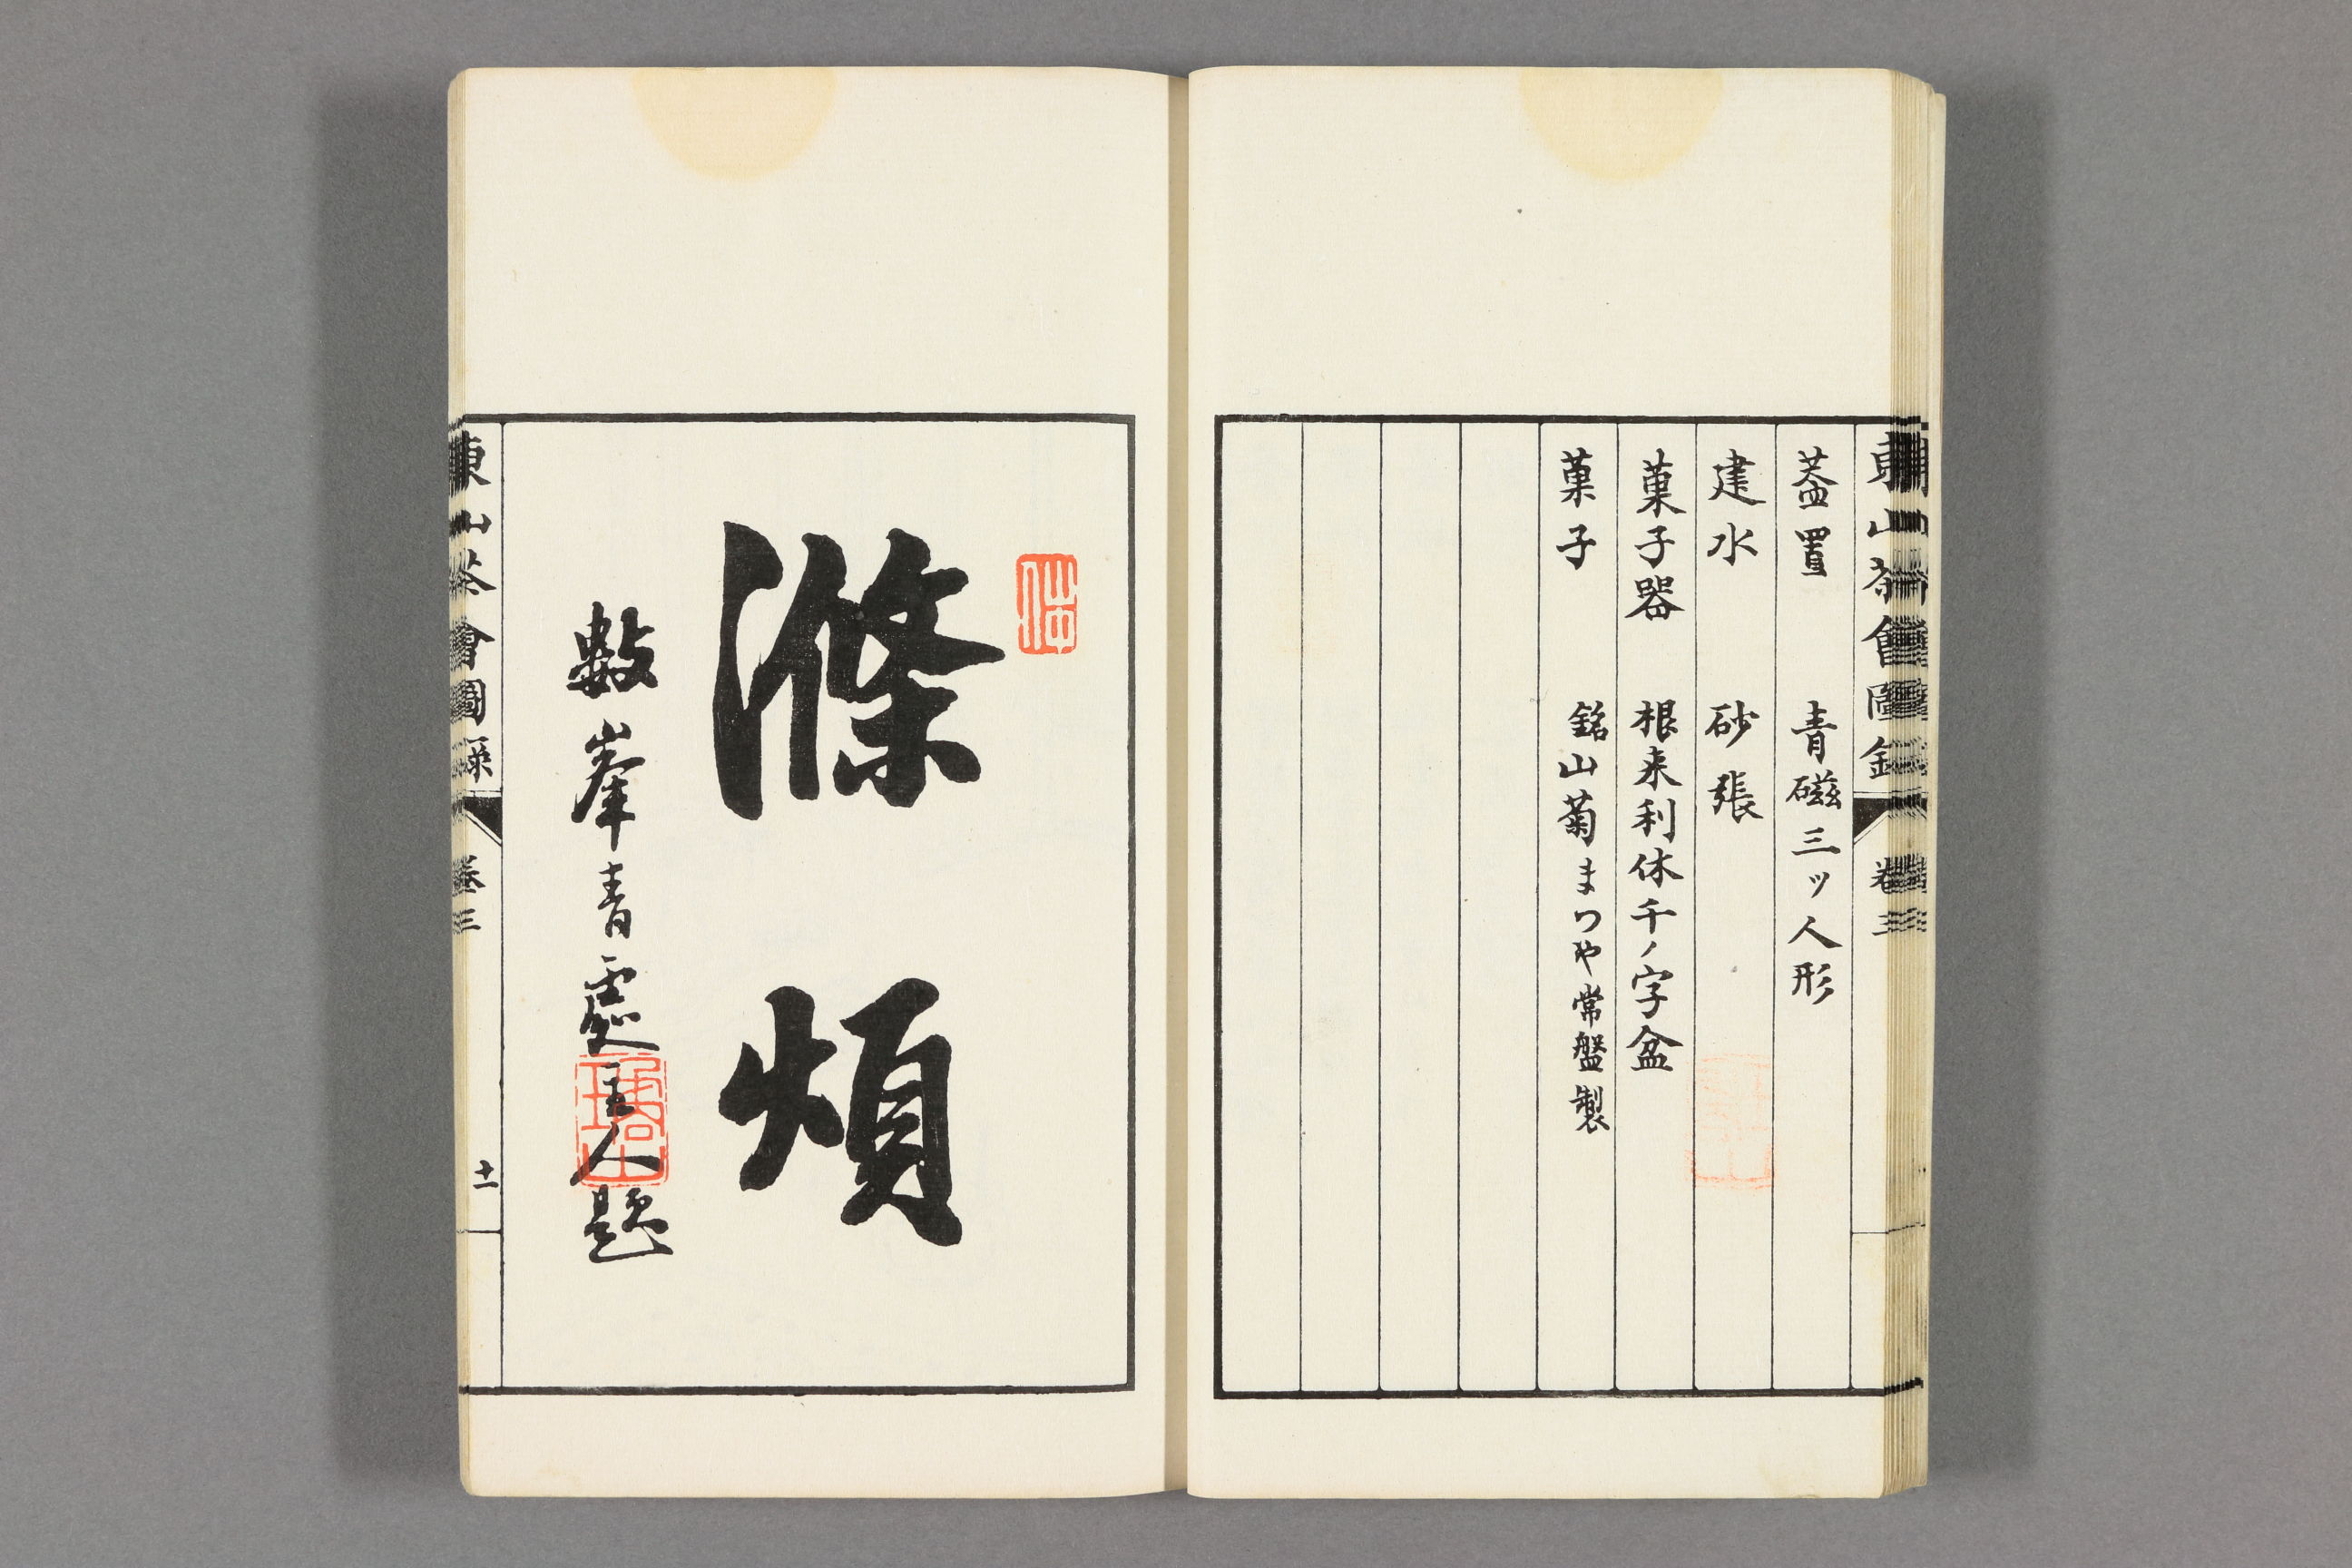 東山茶會圖録
卷三
蓋置 青磁三ツ人形
建水 砂張
菓子器 根来利休千ノ字盆
菓子 銘山菊まつや常盤製
滌煩
數峯青處主人題
東山茶會圖録
卷三
十一